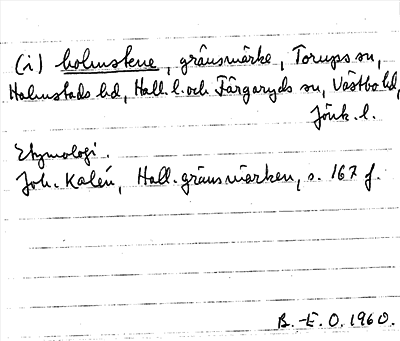 (i) holmstene, gränsmärke, Torups sn,
Halmstads hd, Hall. l. och Färgaryds sn, Västbo hd,
Jönk. l.
Etymologi.
Joh. Kalén, Hall. gränsmärken, s. 167 f.
B.-E. O. 1960.